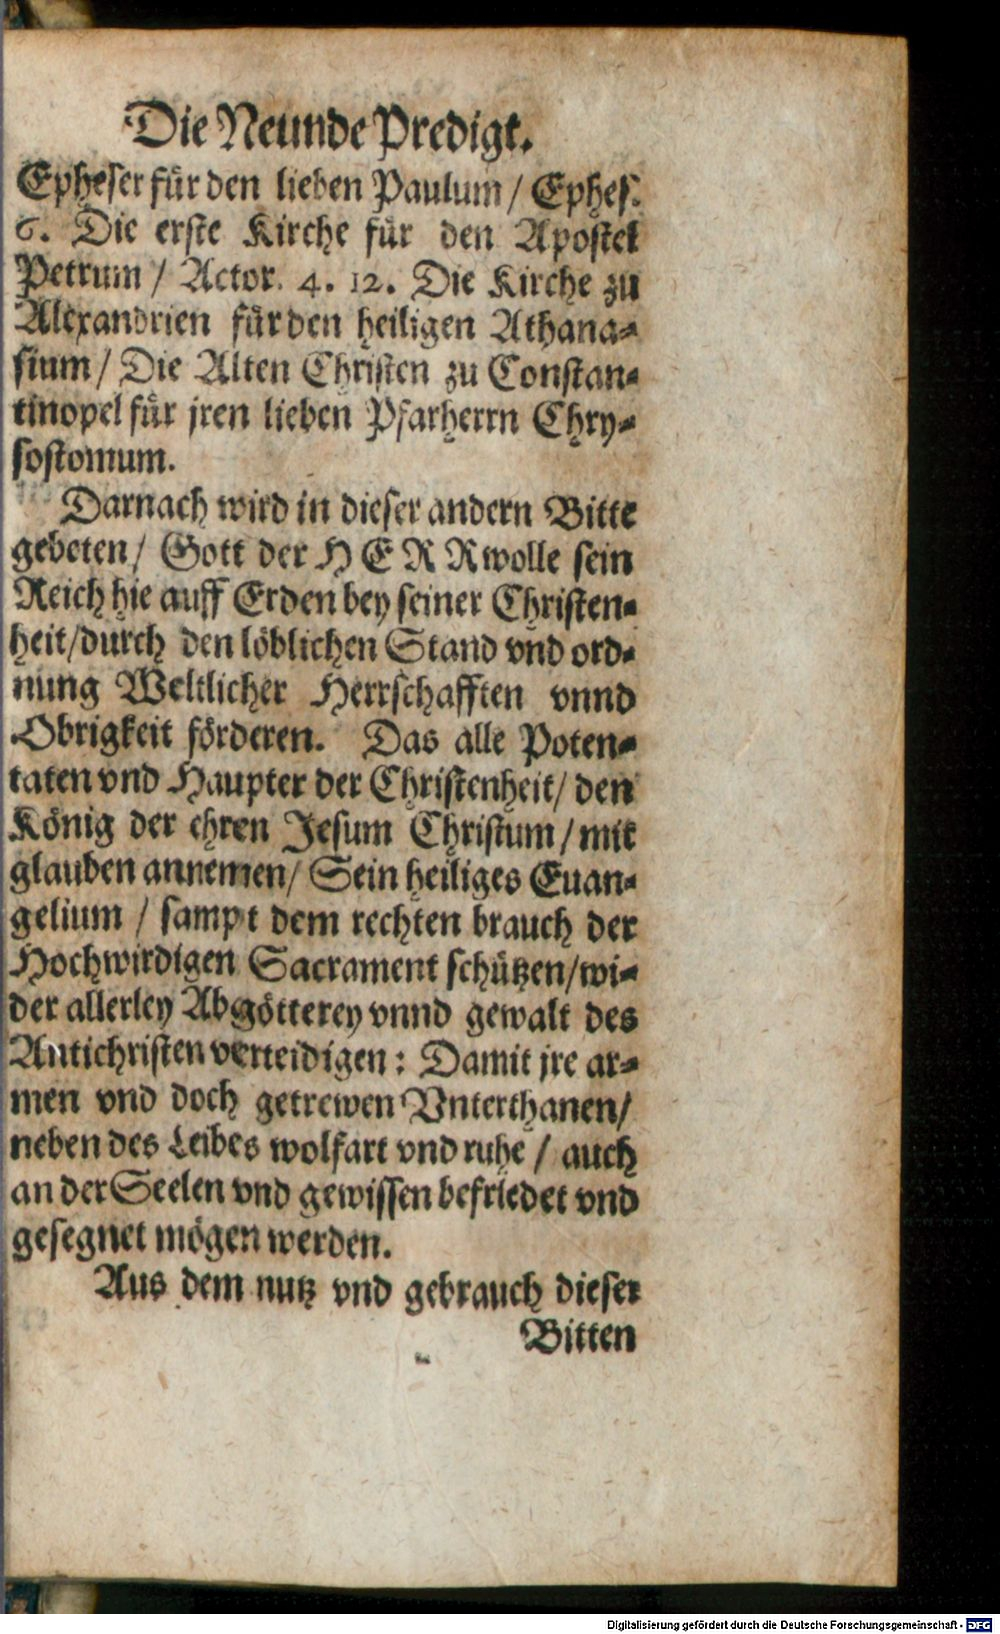 Die Neunde Predigt.
Epheser für den lieben Paulum / Ephes.
6. Die erste Kirche für den Apostel
Petrum / Actor. 4. 12. Die Kirche zu
Alexandrien für den heiligen Athana-
sium / Die Alten Christen zu Constan-
tinopel für jren lieben Pfarherrn Chry-
sostomum.
Darnach wird in dieser andern Bitte
gebeten / Gott der HERR wolle sein
Reich hie auff Erden bey seiner Christen-
heit / durch den löblichen Stand vnd ord-
nung Weltlicher Herrschafften vnnd
Obrigkeit förderen. Das alle Poten-
taten vnd Haupter der Christenheit / den
König der ehren Jesum Christum / mit
glauben annemen / Sein heiliges Euan-
gelium / sampt dem rechten brauch der
Hochwirdigen Sacrament schützen / wi-
der allerley Abgötterey vnnd gewalt des
Antichristen verteidigen : Damit jre ar-
men vnd doch getrewen Vnterthanen /
neben des Leibes wolfart vnd ruhe / auch
an der Seelen vnd gewissen befriedet vnd
gesegnet mögen werden.
Aus dem nutz vnd gebrauch dieser
Bitten
Digitalisierung gefördert durch die Deutsche Forschungsgemeinschaft - DFG